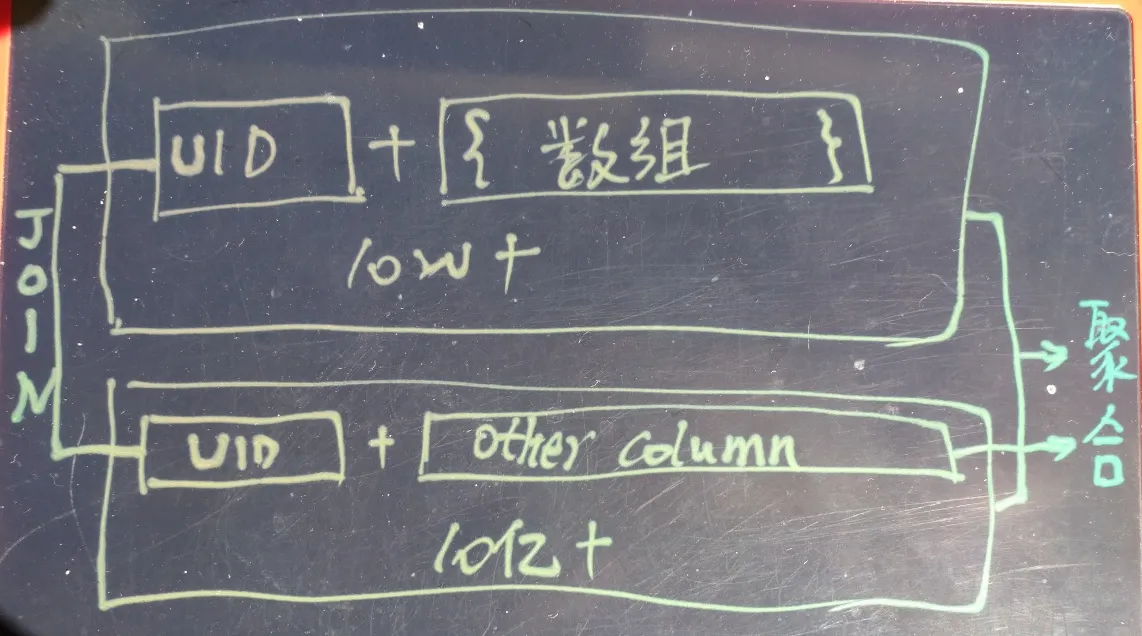 UID + { 数组 }
10W+
JOIN
UID + other column
10亿+
聚合